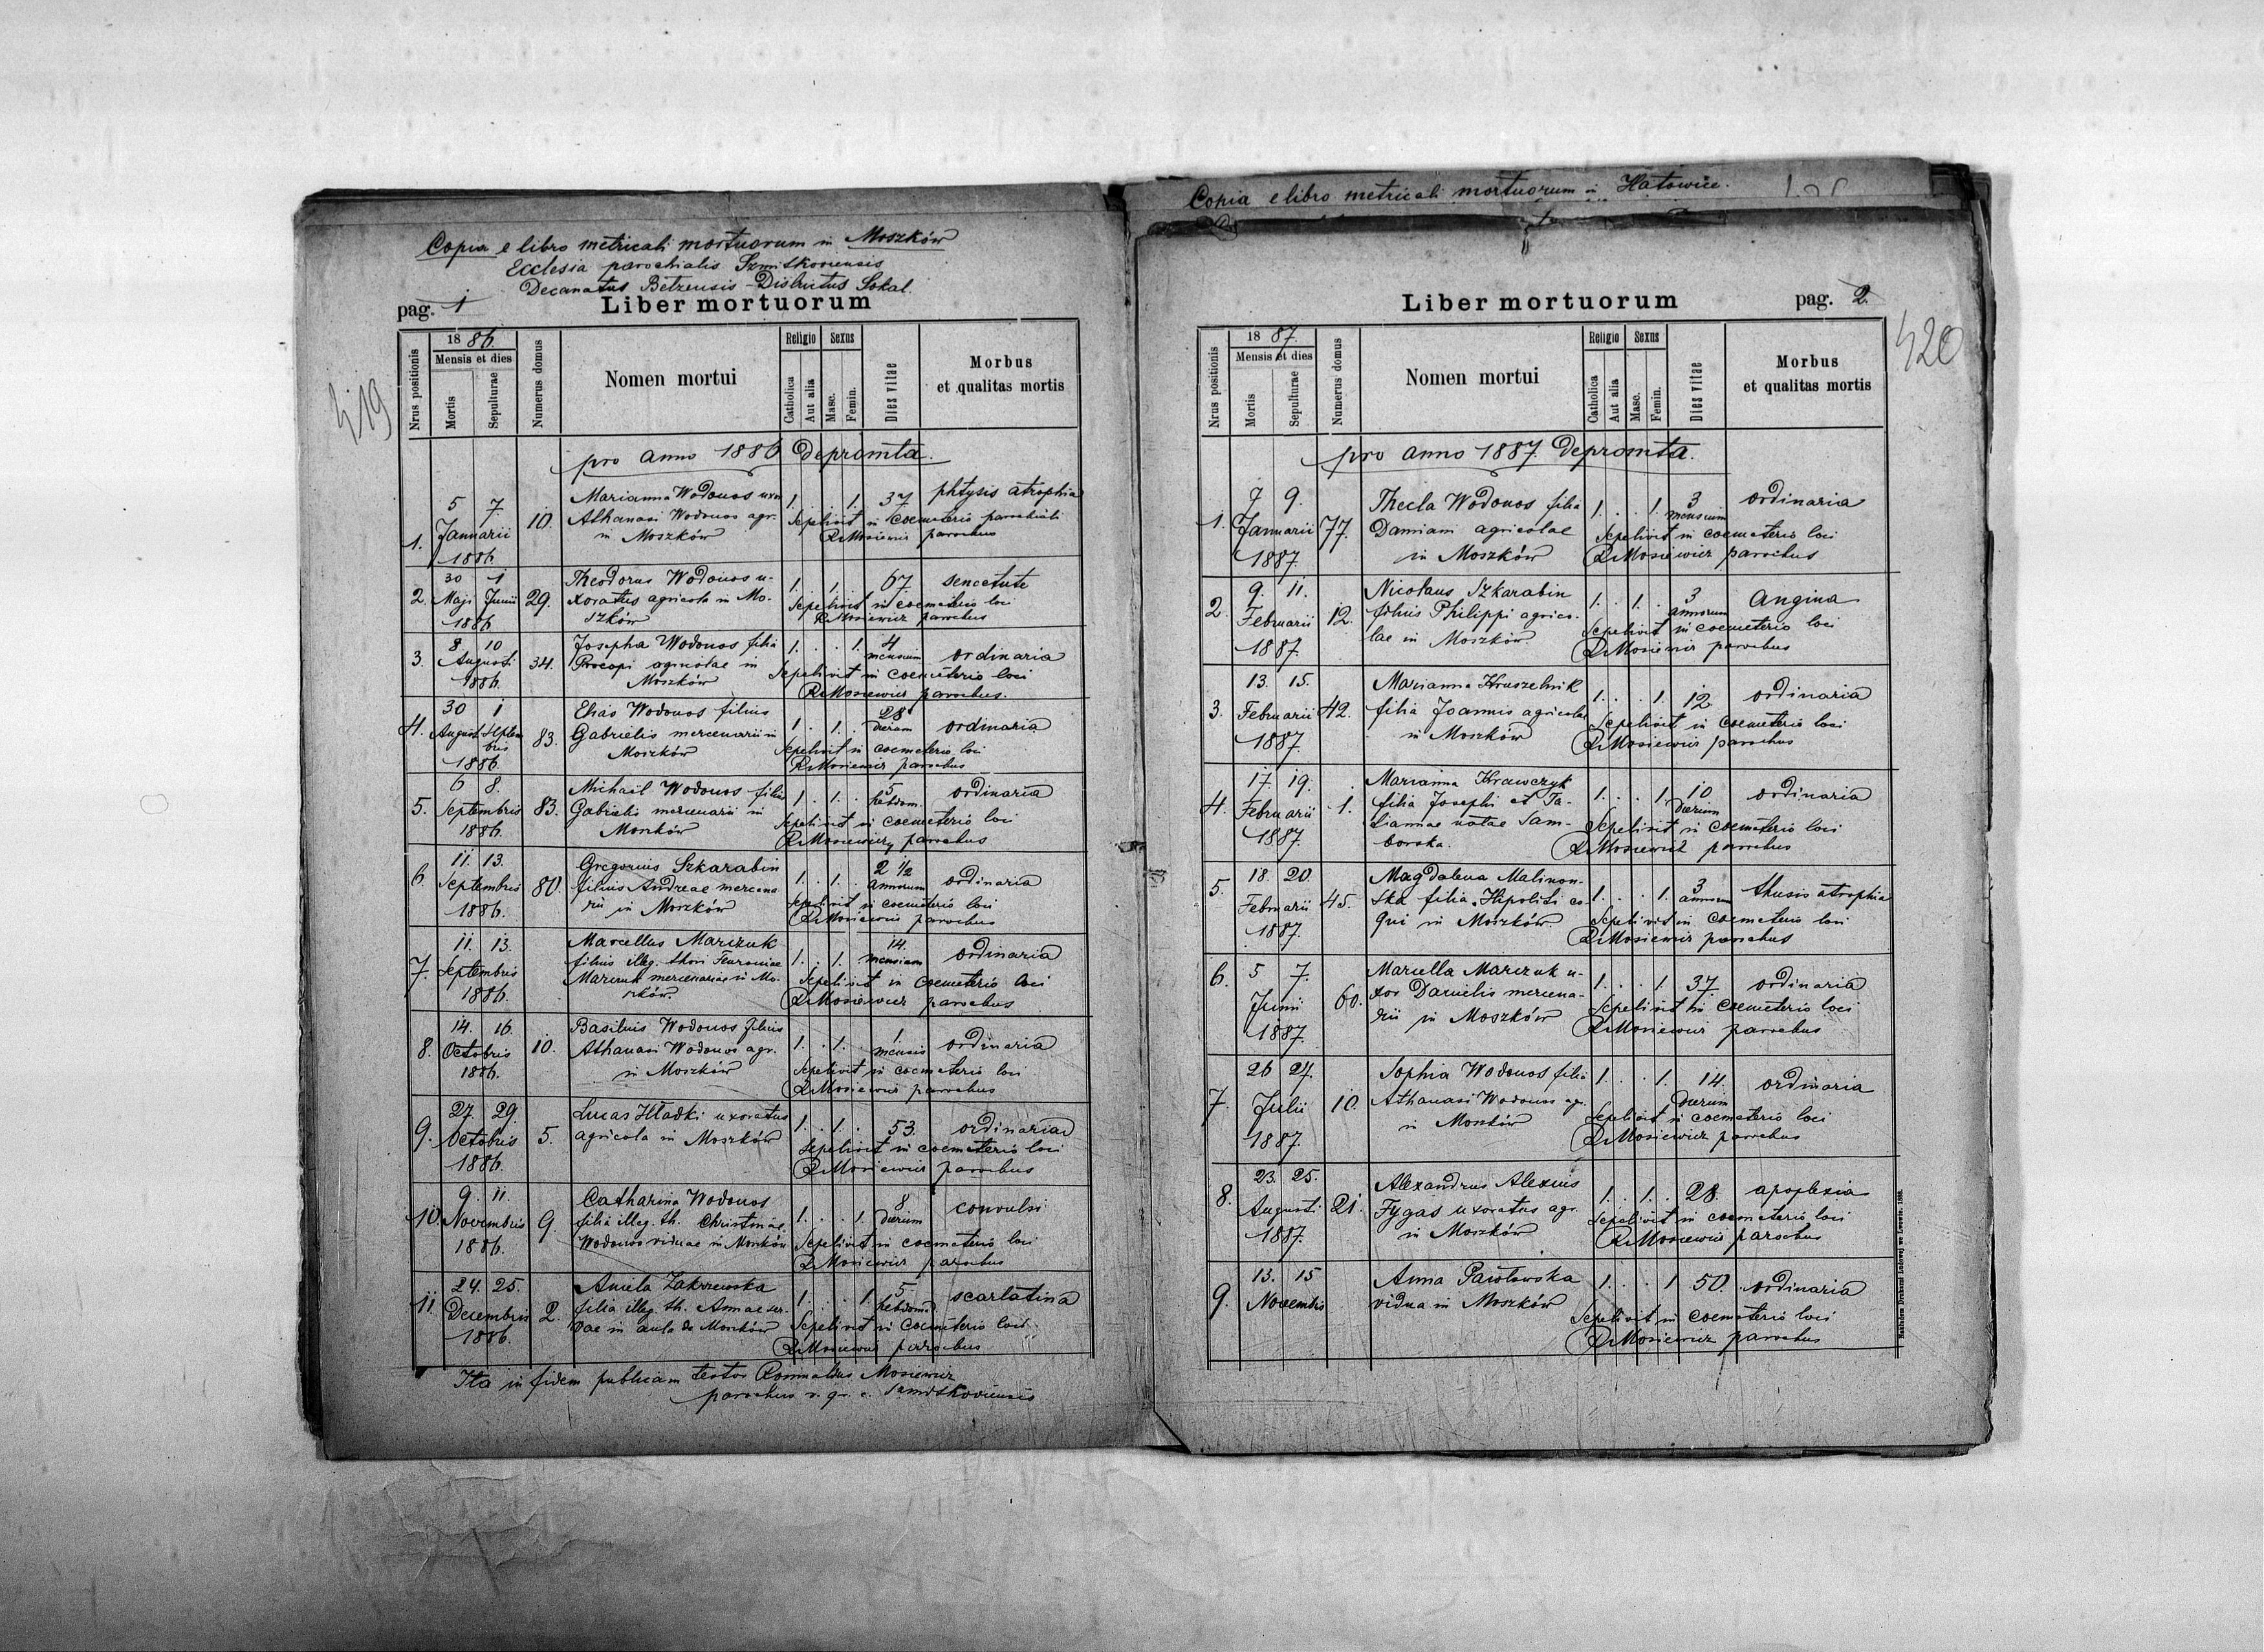 Copia e libro metricali mortuorum in Moszków
Ecclesia parochialis Szmitkoviensis
Decanatus Belzensis - Districtus Sokal.
pag. 1
Liber mortuorum
419
Nrus positionis
1886.
Mensis et dies
Mortis
Sepulturae
Numerus domus
Nomen mortui
Religio
Catholica
Aut alia
Sexus
Masc.
Femin.
Dies vitae
Morbus
et qualitas mortis
pro anno 1886 depromta.
1. 5 7 Januarii 1886 10. Marianna Wodonos uxor 1. . . 1. 37 phtysis atrophia
Athanasi Wodonos agr. Sepelivit in coemeterio parochiali
in Moszków RMosiewicz parochus
2. 30 Maji 1 Junii 1886 29. Theodorus Wodonos u- 1. . 1. . 67. senectute
xoratus agricola in Mo- Sepelivit in coemeterio loci
szków RMosiewicz parochus
3. 8 10 Augusti 1886. 34. Josepha Wodonos filia 1. . . 1. 4 mensium ordinaria
Procopi agricolae in Sepelivit in coemeterio loci
Moszków RMosiewicz parochus.
4. 30 August 1 Septembris 1886. 83. Elias Wodonos filius 1. . 1. . 28 dierum ordinaria
Gabrielis mercenarii in Sepelivit in coemeterio loci
Moszków RMosiewicz parochus
5. 6 8. Septembris 1886. 83. Michaël Wodonos filius 1. . 1. . 5 hebdom. ordinaria
Gabrielis mercenarii in Sepelivit in coemeterio loci
Moszków RMosiewicz parochus
6. 11. 13. Septembris 1886. 80. Gregorius Szkarabin 1. . 1. . 2 1/2 annorum ordinaria
filius Andreae mercena- Sepelivit in coemeterio loci
rii in Moszków RMosiewicz parochus
7. 11. 13. Septembris 1886. Marcellus Marczuk 1. . 1. . 14. mensium ordinaria
filius illeg. thori Feuroniae Sepelivit in coemeterio loci
Marczuk mercenariae in Mo- RMosiewicz parochus
szków.
8. 14. 16. Octobris 1886. 10. Basilius Wodonos filius 1. . 1. . 1 mensis ordinaria
Athanasi Wodonos agr. Sepelivit in coemeterio loci
in Moszków RMosiewicz parochus
9. 27. 29. Octobris 1886. 5. Lucas Hładki uxoratus 1. . 1. . 53. ordinaria
agricola in Moszków Sepelivit in coemeterio loci
RMosiewicz parochus
10. 9. 11. Novembris 1886. 9. Catharina Wodonos 1. . . 1. 8 dierum convulsi
filia illeg. th. Christinae Sepelivit in coemeterio loci
Wodonos viduae in Moszków RMosiewicz parochus
11. 24. 25. Decembris 1886. 2. Aniela Zakrzewska 1. . . 1. 5. hebdomad. scarlatina
filia illeg. th. Annae ser- Sepelivit in coemeterio loci
vae in aula de Moszków RMosiewicz parochus
Ita in fidem publicam testor Romualdus Mosiewicz
parochus r. gr. c. Szmitkoviensis
Copia e libro metricali mortuorum in Hatowice.
Liber mortuorum
pag. 2.
420
Nrus positionis
1887.
Mensis et dies
Mortis
Sepulturae
Numerus domus
Nomen mortui
Religio
Catholica
Aut alia
Sexus
Masc.
Femin.
Dies vitae
Morbus
et qualitas mortis
pro anno 1887 depromta.
1. 7 9. Januarii 1887. 77. Thecla Wodonos filia 1. . . 1. 3 mensium ordinaria
Damiani agricolae Sepelivit in coemeterio loci
in Moszków RMosiewicz parochus
2. 9. 11. Februarii 1887. 12. Nicolaus Szkarabin 1. . 1. . 3 annorum angina
filius Philippi agrico- Sepelivit in coemeterio loci
lae in Moszków. RMosiewicz parochus
3. 13. 15. Februarii 1887. 42. Marianna Hruszelnik 1. . . 1. 12 ordinaria
filia Joannis agricolae Sepelivit in coemeterio loci
in Moszków RMosiewicz parochus
4. 17. 19. Februarii 1887. 1. Marianna Krawczyk 1. . . 1. 10 dierum ordinaria
filia Josephi et Ta- Sepelivit in coemeterio loci
tiannae natae Sam- RMosiewicz parochus
borska.
5. 18. 20. Februarii 1887. 45. Magdalena Malinow- 1. . . 1. 3 annorum thusis atrophia
ska filia Hipoliti co- Sepelivit in coemeterio loci
qui in Moszków. RMosiewicz parochus
6. 5 7. Junii 1887. 60. Mariella Marczuk u- 1. . . 1. 37. ordinaria
xor Danielis mercena- Sepelivit in coemeterio loci
rii in Moszków RMosiewicz parochus
7. 26 27. Julii 1887. 10. Sophia Wodonos filia 1. . . 1. 14. dierum ordinaria
Athanasi Wodonos agr. Sepelivit in coemeterio loci
in Moszków RMosiewicz parochus
8. 23. 25. Augusti 1887. 21. Alexandrus Alexius 1. . 1. . 28. apoplexia
Fygas uxoratus agr. Sepelivit in coemeterio loci
in Moszków RMosiewicz parochus
9. 13. 15 Novembris Anna Pawłowska 1. . . 1 50. ordinaria
vidua in Moszków Sepelivit in coemeterio loci
RMosiewicz parochus
Nakładem Drukarni Ludowej we Lwowie.